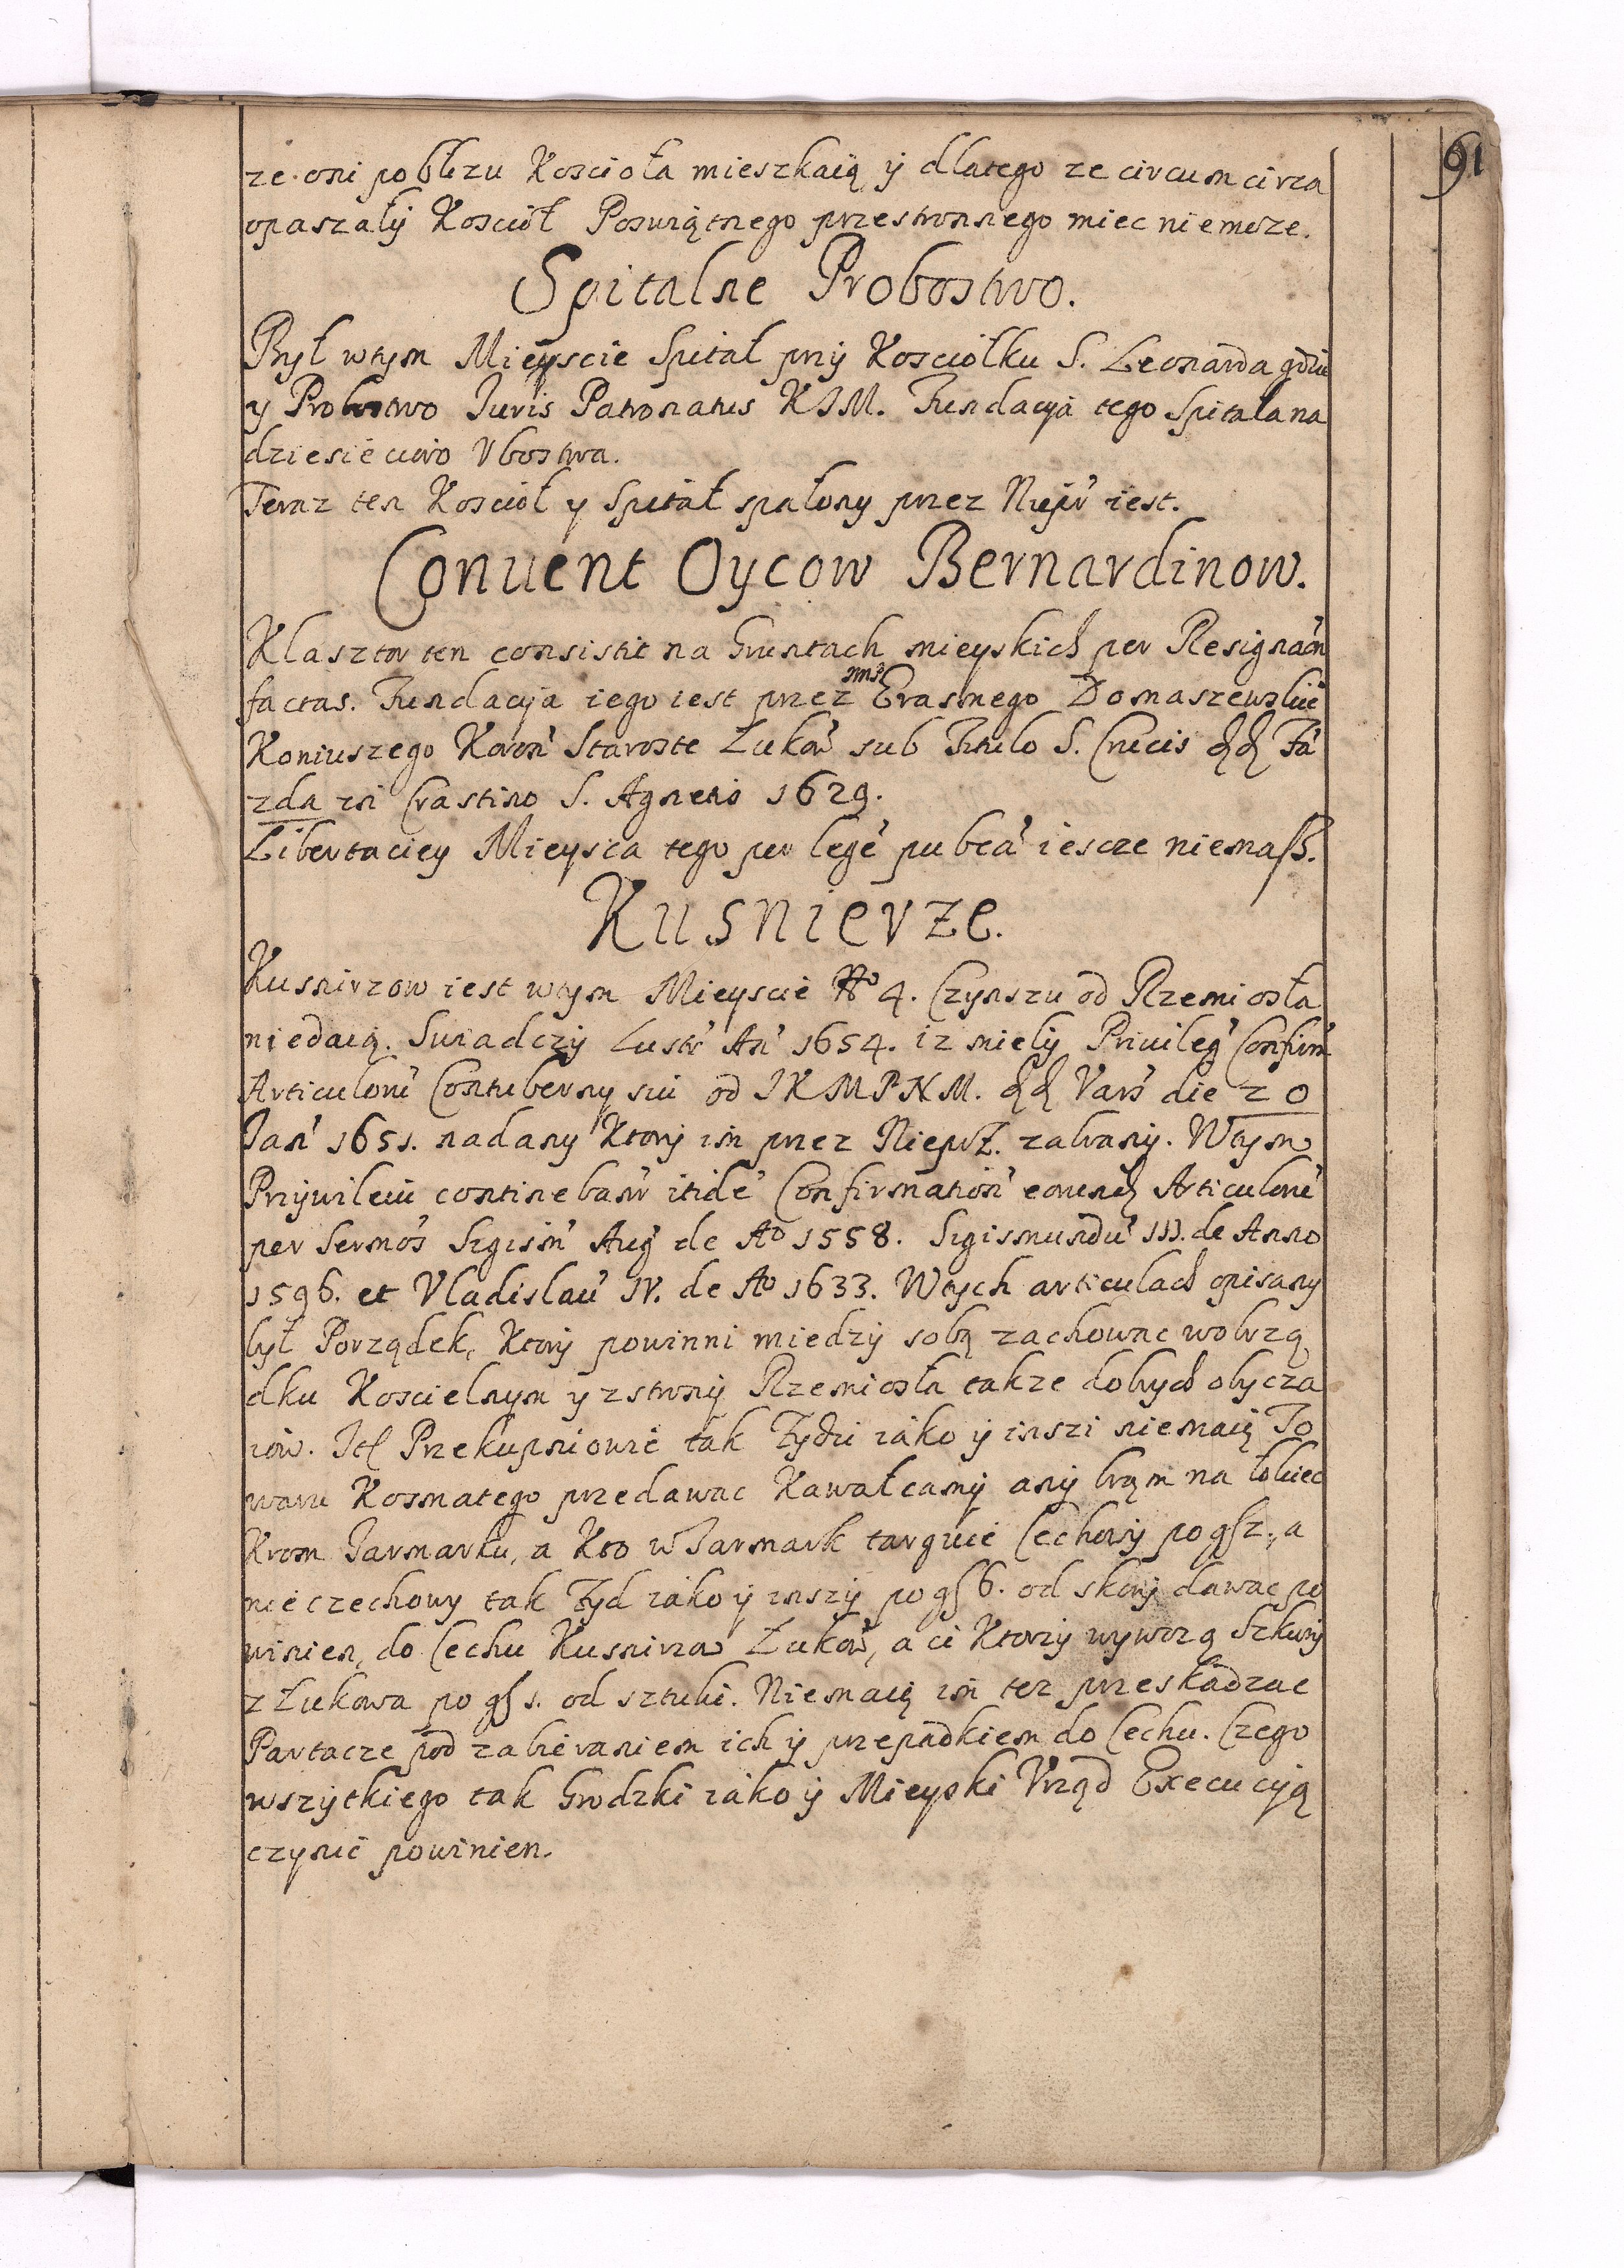 91
ze oni poblizu Koscioła mieszkaią ÿ dlatego ze circumcirca
opaszały Kosciół Poswiątnego przestronnego miec niemoze.
Spitalne Probostwo.
Był wtym Mieyscie Spitał przÿ Kosciołku S. Leonarda gdzie
y Probostwo Juris Patronatus KJM. Fundacÿa tego Spitala na
dziesiecioro Vbostwa.
Teraz ten Kosciół y Spitał spalony przez Niepr' iest.
Convent Oycow Bernardinow.
Klasztor ten consistit na Gruntach mieyskich per Resignaõn
factas. Fundacÿa iego iest przez Jmś Erasmego Domaszewskie
Koniuszego Koroñ Staroste Łukow̃ sub Titulo S. Crucis Fa
zda in Crastino S. Agnetis 1629.
Libertaciey Mieysca tego per legẽ pubcã iescze niemaſß.
Kusnierze.
Kusnirzow iest wtym Mieyscie No 4. Czynszu od Rzemiosła
niedaią. Swiadczÿ Lustr' An' 1654. iz mielÿ Priuileg' Confirm'
Articulorũ Contuberny sui od JKMPNM. Vars' die 20
Jan' 1651. nadany Ktorÿ im przez Nieprz. zabranÿ. Wtym
Przÿwileiu continebant' itidẽ Confirmation' eorund Articulorũ
per Sermos' Sigism' Aug' de Ao 1558. Sigismundũ III. de Anno
1596. et Vladislaũ IV. de Ao 1633. Wtych articulach opisany
był Porządek, Ktorÿ powinni miedzÿ sobą zachowac wobrzą
dku Koscielnym y zstronÿ Rzemiosła takze dobrych obycza
iow. Jt Przekupniowie tak Żydzi iáko ÿ inszi niemaią To
waru Kosmatego przedawac Kawałcamÿ anÿ bram na łokiec
Krom Jarmarku, a Kto w Jarmark targuie Cechowÿ po gſ 2., a
nieczechowy tak Żyd iáko ÿ inszÿ po gſ 6. od skorÿ dawac po
winien, do Cechu Kusnirzow Łukow̃, a ci Ktorzÿ wywozą Skurÿ
z Łukowa po gſ 1. od sztuki. Niemaią im tez przeskadzac
Partacze pod zabieraniem ich ÿ przepadkiem do Cechu. Czego
wszÿtkiego tak Grodzki iáko ÿ Mieyski Vrząd Execucÿą
czynic powinien.